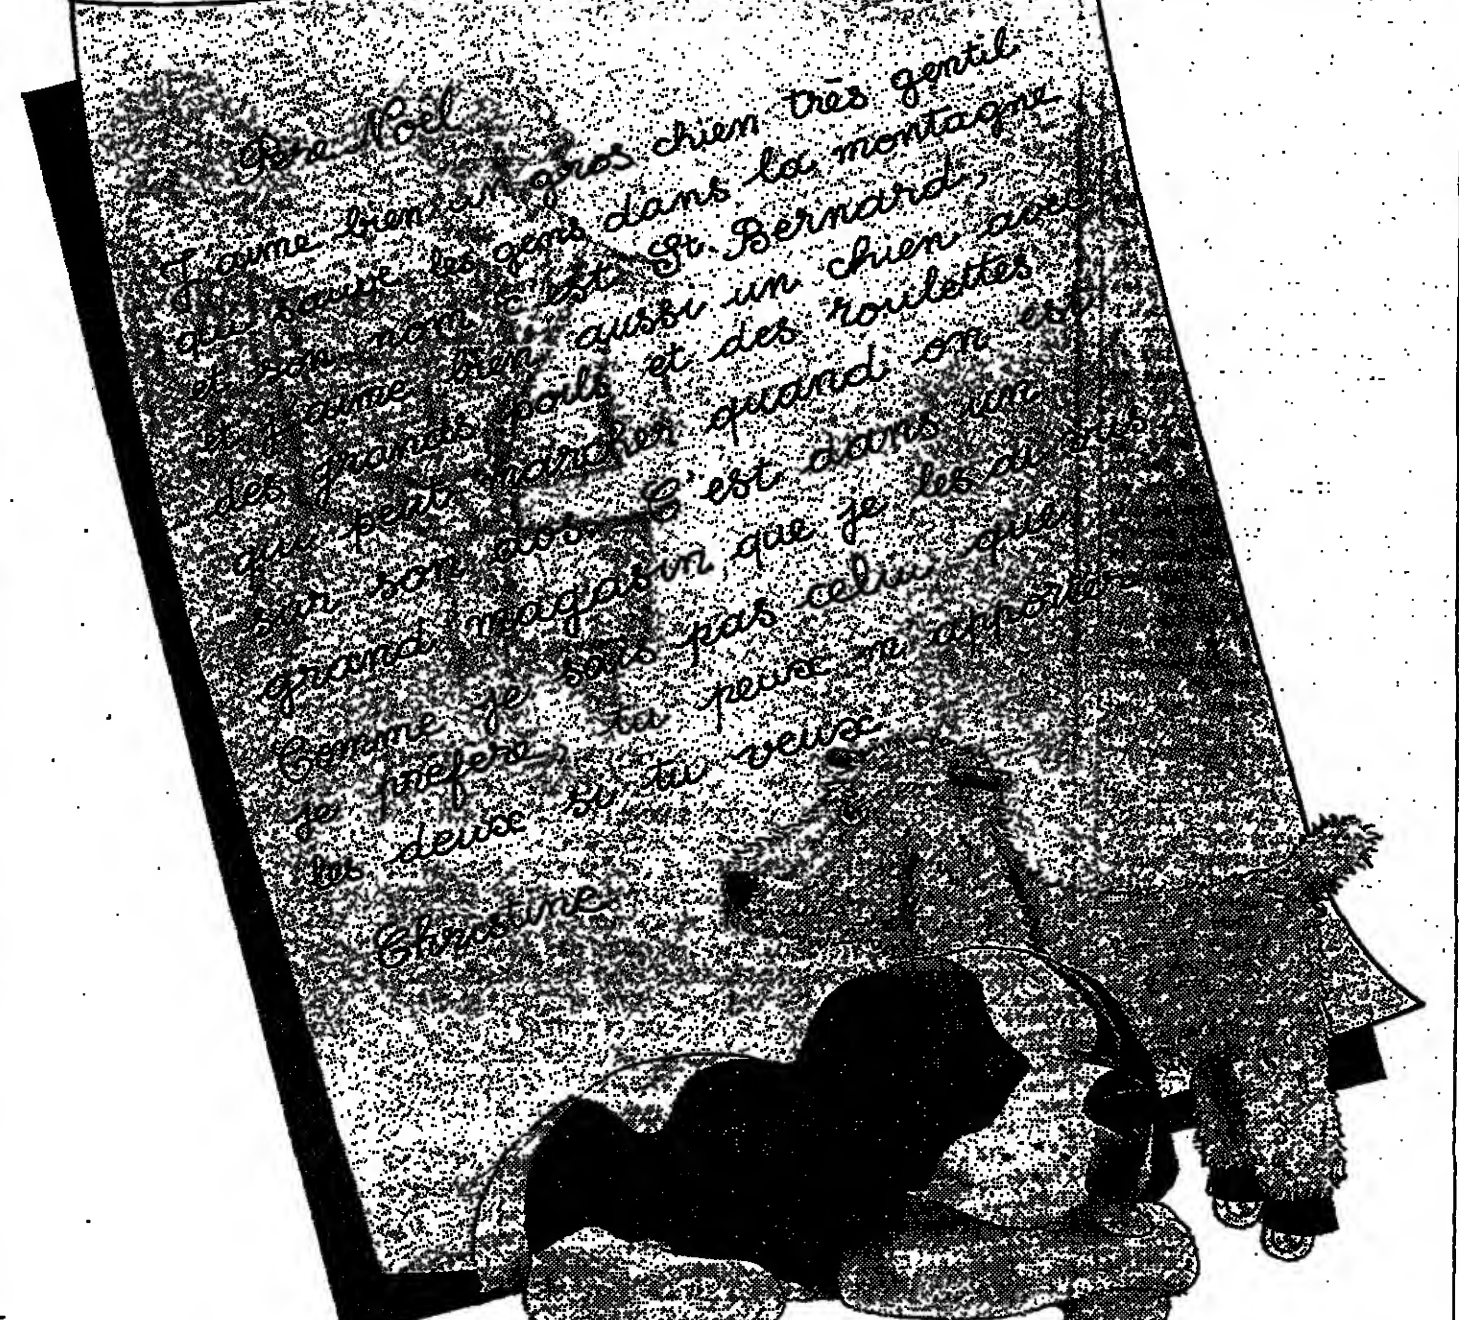 Père Noël
J'aime bien un gros chien très gentil
qui sauve les gens dans la montagne
et son nom c'est St. Bernard,
et j'aime bien aussi un chien avec
des grands poils et des roulettes
qui peut marcher quand on est
sur son dos. C'est dans un
grand magasin que je les ai vus
Comme je sais pas celui que
je préfère, tu peux m'apporter
les deux si tu veux
Christine